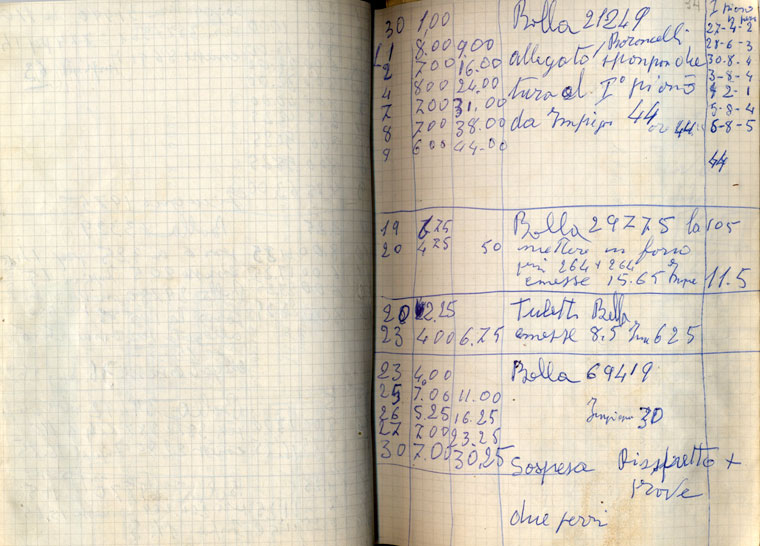 30 1,00 Bolla 21249 I piano
27-4-2
1 8.00 9.00 allegato Boroncelli 28-6-3
2 7 00 16.00 30-8-4
3-8-4
4 8 00 24.00 tura al I° piano 4 2-1
7 7 00 31.00 5-8-4
8 7,00 38.00 da 44 ore 44 6-8-5
9 6 00 44-00
44
19 6 75 Bolla 29775 la 105
20 4 75 50 mettere in forno
264 + 264
emesse 15.65 11.5
20 2 25 Bolla
23 4.00 6.75 emesse 8,5 625
23 4,00 Bolla 69419
25 7.00 11.00
26 5.25 16.25 30
27 7 00 23.25
30 7.00 30,25 Sospesa Dispiretto +
prove
due ferri